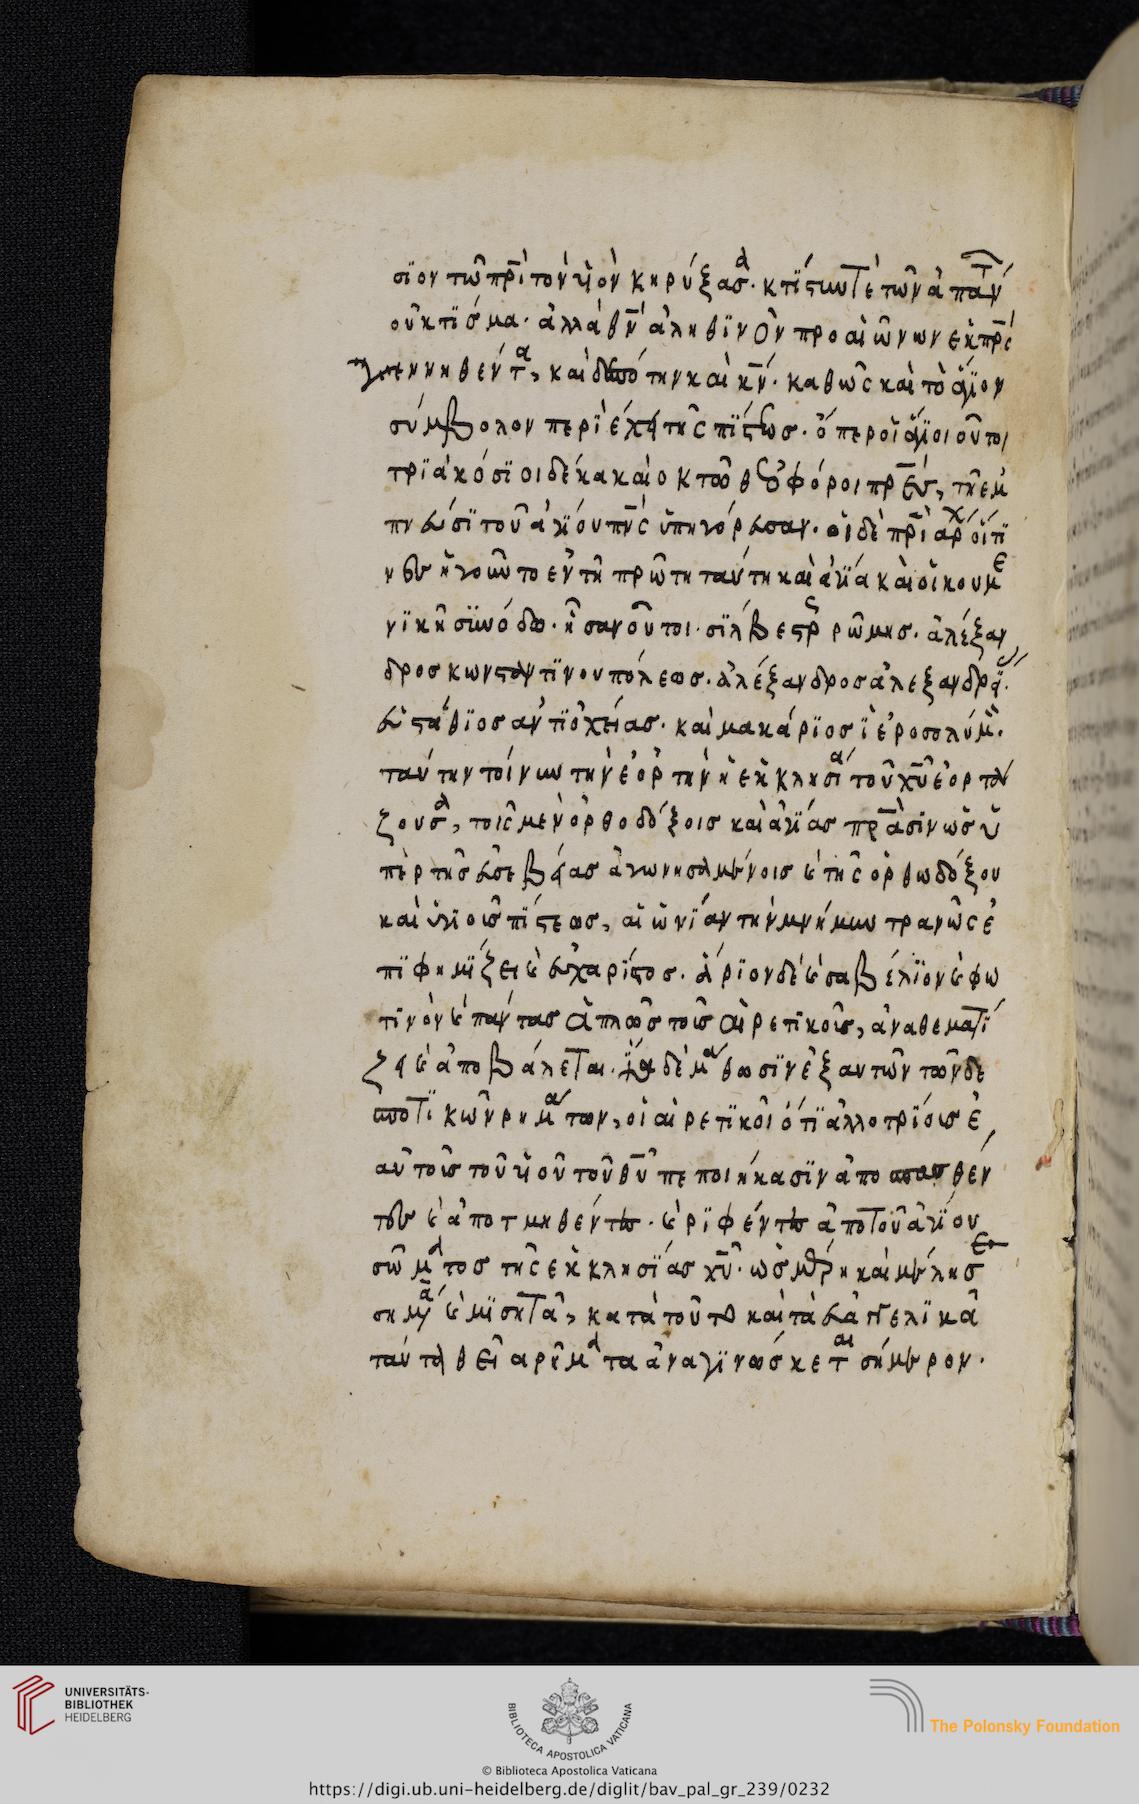 σϊον τῶ πρ̅ὶ τὸν υἱὸν κηρύξας· κτίστην τὲ τῶν ἁπάντων
οὐ κτϊσμα· ἀλλὰ θν̅ ἀληθϊνὸν προ αἰώνων ἐκ πρ̅ς
γεννηθέντα, καὶ δεσπότην καὶ κν̅· καθὼς καὶ τὸ ἅγϊον
σύμβολον περϊέχει τῆς πίστεως· ὅπερ οἱ ἅγϊοι οὗτοι
τρϊακόσϊοι δέκα καὶ ὀκτὼ θεοφόροι πρ̅ες, τῆ ἐμ
πνεύσϊ του ἁγίου πν̅ς ὑπηγόρευσαν· οἱ δὲ πρ̅ὶαρχοι οἵτϊ
νες ἡγοῦντο ἐν τῆ πρώτη ταύτη καὶ ἁγία καὶ οἰκουμε
νϊκῆ συνόδω· ἦσαν οὗτοι· σϊλβεστρος ρώμης· ἀλέξαν
δρος κωνσταντϊνουπόλεως· ἀλέξανδρος ἀλεξανδρείας·
εὐστάθϊος ἀντϊοχείας· καὶ μακάρϊος ϊεροσολύμων·
ταύτην τοίνυν τὴν ἑορτὴν ἡ ἐκκλησία τοῦ χυ̅ ἑορτά
ζουσα, τοῖς μὲν ὀρθοδόξοις καὶ ἁγίας πράσϊν ὡς ὑ
πὲρ τῆς εὐσεβείας ἀγωνησαμένοις καὶ τῆς ὀρθωδόξου
καὶ ὑγιοῦς πίστεως, αἰωνίαν τὴν μνήμην τρανῶς ἐ
πϊφημϊζει καὶ εὐχαρίστος· ἄρϊον δὲ καὶ σαβέλϊον καὶ φω
τϊνὸν καὶ πάντας ἁπλῶς τοὺς αἱρετϊκοῖς, ἀναθεματϊ
ζει καὶ ἀποβάλεται· ἵνα δὲ μάθωσϊν ἐξ αυτῶν τῶν δε
σποτϊκῶν ρημάτων, οἱ αἱρετϊκοῖ ὅτϊ ἀλλοτρίοις ἑ
αὐτοῖς τοῦ υἱοῦ τοῦ θυ̅ πεποιήκασϊν ἀποσπασθέν
τες καὶ ἀποτμηθέντες· καὶ ρϊφέντες ἀπὸ τοῦ ἁγίου
σώματος τῆς ἐκκλησίας χυ̅· ὡς μέρη καὶ μέλη σε
σημμένα καὶ μϊσητὰ, κατὰ τοῦτο καὶ τὰ εὐαγγελϊκὰ
ταύτα θεῖα ρήματα ἀναγϊνώσκεται σήμερον·
UNIVERSITÄTS-
BIBLIOTHEK
HEIDELBERG
BIBLIOTECA APOSTOLICA VATICANA
The Polonsky Foundation
© Biblioteca Apostolica Vaticana
https://digi.ub.uni-heidelberg.de/diglit/bav_pal_gr_239/0232